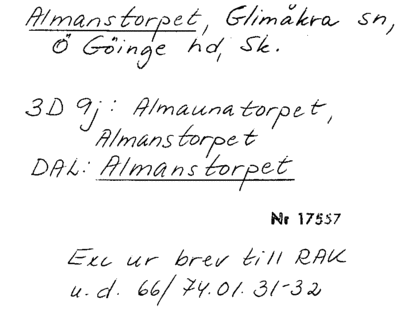 Almanstorpet, Glimåkra sn,
Ö Göinge hd, Sk.
3D 9j: Almaunatorpet,
Almanstorpet
DAL: Almanstorpet
Nr 17557
Exc ur brev till RAK
u.d. 66/74.01.31-32